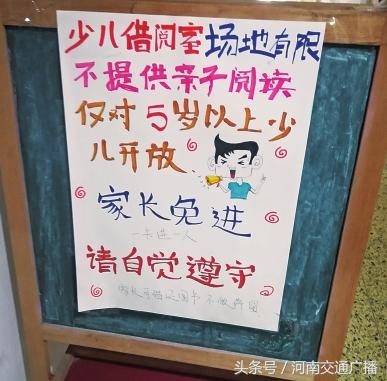 少儿借阅室场地有限
不提供亲子阅读
仅对5岁以上少
儿开放
家长免进
一卡进一人
请自觉遵守
头条号／河南交通广播